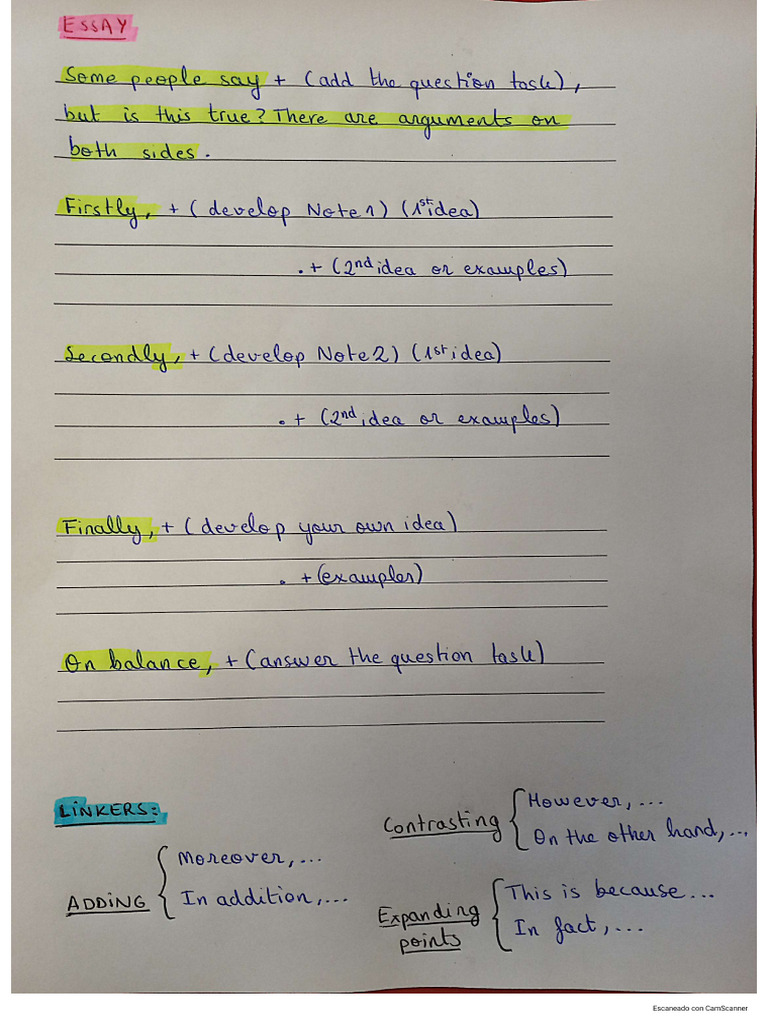 ESSAY
Some people say + (add the question task),
but is this true? There are arguments on
both sides.
Firstly, + (develop Note 1) (1st idea)
. + (2nd idea or examples)
Secondly, + (develop Note 2) (1st idea)
. + (2nd idea or examples)
Finally, + (develop your own idea)
. + (examples)
On balance, + (answer the question task)
LINKERS:
ADDING { Moreover, ...
In addition, ...
Contrasting { However, ...
On the other hand, ...
Expanding points { This is because ...
In fact, ...
Escaneado con CamScanner